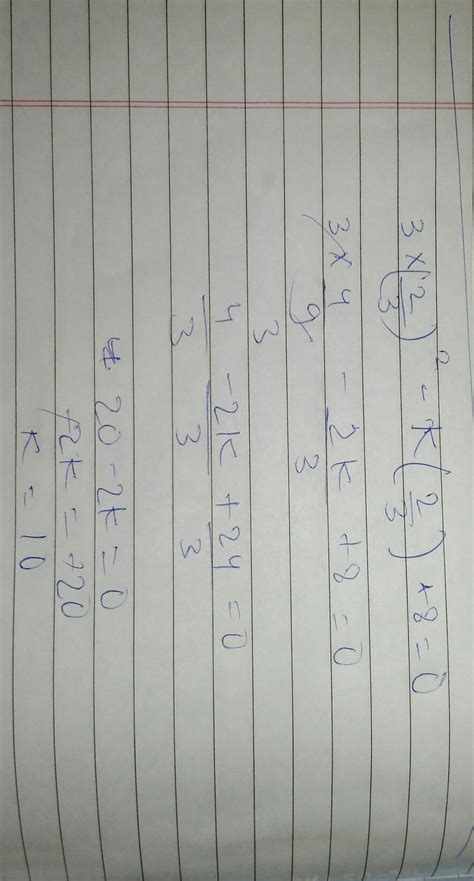 3 × (2/3)² - K(2/3) + 8 = 0
3 × 4/9 - 2K/3 + 8 = 0
3
4/3 - 2K/3 + 24/3 = 0
20 - 2K = 0
+2K = +20
K = 10